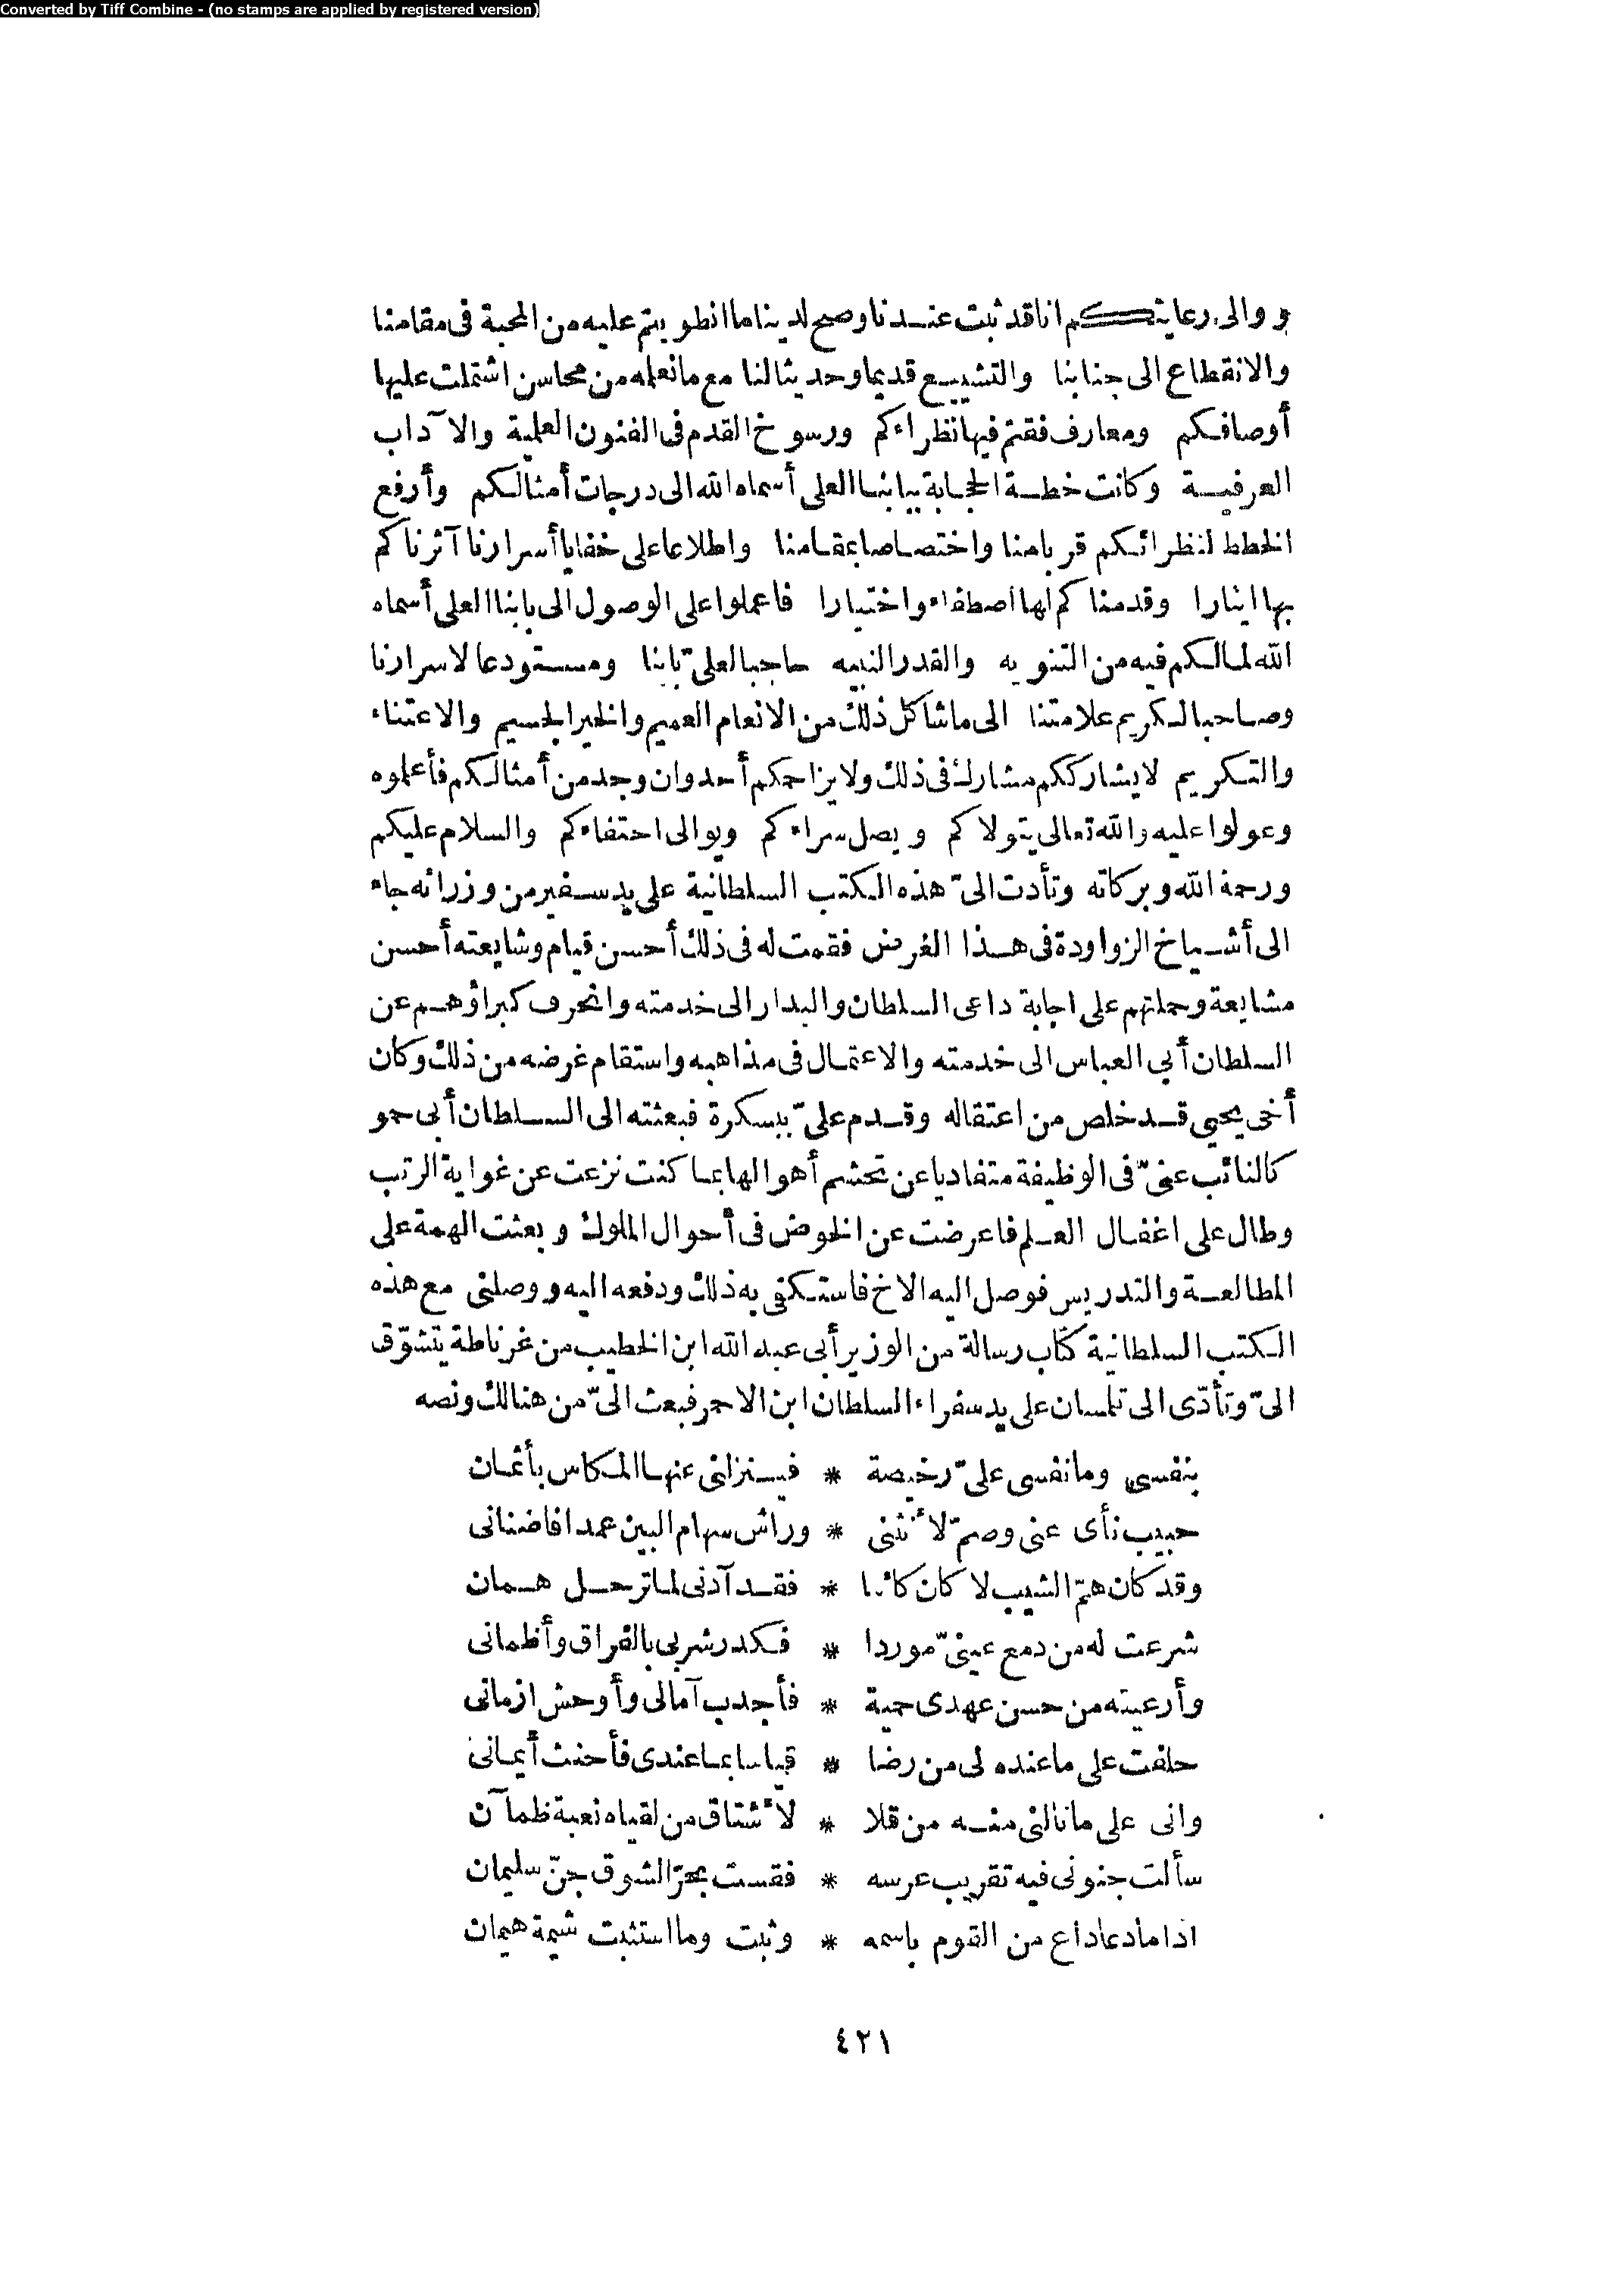 Converted by Tiff Combine - (no stamps are applied by registered version)
ووالى رعايتكم اناقد ثبت عندنا وصح لدينا ما انطويتم عليه من المحبة فى مقامنا
والانقطاع الى جنابنا والتشييع قديما وحديثا لنا مع ما نعلمه من محاسن اشتملت عليها
أوصافكم ومعارف فقتم فيها نظراءكم ورسوخ القدم فى الفنون العلمية والآداب
العرفية وكانت خطة الحجابة ببابنا العلى أسماه الله الى درجات أمثالكم وأرفع
الخطط لنظرائكم قربا منا واختصاصا بمقامنا واطلاعا على خفايا أسرارنا آثرناكم
بها ايثارا وقدمناكم لها اصطفاء واختيارا فاعملوا على الوصول الى بابنا العلى أسماه
الله لما لكم فيه من التنويه والقدر النبيه حاجبا لعلىّ بابنا ومستودعا لاسرارنا
وصاحبا لكريم علامتنا الى ما شاكل ذلك من الانعام العميم والخير الجسيم والاعتناء
والتكريم لا يشارككم مشارك فى ذلك ولا يزاحمكم أحد وان وجد من أمثالكم فأعلموه
وعولوا عليه والله تعالى يتولاكم ويصل سراءكم ويوالى احتفاءكم والسلام عليكم
ورحمة الله وبركاته وتأدت الىّ هذه الكتب السلطانية على يد سفير من وزرائه جاء
الى أشياخ الزواودة فى هذا الغرض فقمت له فى ذلك أحسن قيام وشايعته أحسن
مشايعة وحملتهم على اجابة داعى السلطان والبدار الى خدمته وانحرف كبراؤهم عن
السلطان أبي العباس الى خدمته والاعتمال فى مذاهبه واستقام غرضه من ذلك وكان
أخى يحيى قد خلص من اعتقاله وقدم علىّ ببسكرة فبعثته الى السلطان أبى حمو
كالنائب عنىّ فى الوظيفة متفاديا عن تجشم أهوالها بما كنت نزعت عن غواية الرتب
وطال على اغفال العلم فاعرضت عن الخوض فى أحوال الملوك وبعثت الهمة على
المطالعة والتدريس فوصل اليه الاخ فاستكفى به ذلك ودفعه اليه ووصلنى مع هذه
الكتب السلطانية كتاب رسالة من الوزير أبى عبد الله ابن الخطيب من غرناطة يتشوّق
الىّ وتأدّى الى تلمسان على يد سفراء السلطان ابن الاحمر فبعث الىّ من هنالك ونصه
بنفسى وما نفسى علىّ رخيصة * فينزلنى عنها المكاس بأثمان
حبيب نأى عنى وصمّ لأنثنى * وراش سهام البين عمدا فاضنانى
وقد كان همّ الشيب لا كان كائنا * فقد آدنى لما ترحل همان
شرعت له من دمع عينىّ موردا * فكدر شربى بالفراق وأظمانى
وأرعيته من حسن عهدى حمية * فأجدب آمالى وأوحش ازمانى
حلفت على ما عنده لى من رضا * قياسا بما عندى فأحنث أيمانى
وانى على ما نالنى منه من قلا * لأشتاق من لقياه نعبة ظمآن
سألت جنونى فيه تقريب عرسه * فقست بحرّ الشوق جنّ سليمان
اذا ما دعا داع من القوم باسمه * وثبت وما استثبت شيمة هيمان
٤٢١